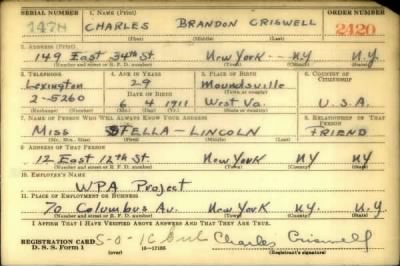 SERIAL NUMBER 1. NAME (Print) ORDER NUMBER
147H CHARLES BRANDON CRISWELL 2420
(First) (Middle) (Last)
2. ADDRESS (Print)
149 East 34th St. New York NY N.Y.
(Number and street or R. F. D. number) (Town) (County) (State)
3. TELEPHONE 4. AGE IN YEARS 5. PLACE OF BIRTH 6. COUNTRY OF CITIZENSHIP
Lexington 29 Moundsville
DATE OF BIRTH (Town or county)
2-5260 6 4 1911 West Va. U.S.A.
(Exchange) (Number) (Mo.) (Day) (Yr.) (State or country)
7. NAME OF PERSON WHO WILL ALWAYS KNOW YOUR ADDRESS 8. RELATIONSHIP OF THAT PERSON
Miss STELLA - LINCOLN FRIEND
(Mr., Mrs., Miss) (First) (Middle) (Last)
9. ADDRESS OF THAT PERSON
12 East 12th St. New York NY NY
(Number and street or R. F. D. number) (Town) (County) (State)
10. EMPLOYER'S NAME
WPA Project
11. PLACE OF EMPLOYMENT OR BUSINESS
70 Columbus Av. New York NY N.Y.
(Number and street or R. F. D. number) (Town) (County) (State)
I AFFIRM THAT I HAVE VERIFIED ABOVE ANSWERS AND THAT THEY ARE TRUE.
REGISTRATION CARD Charles Criswell
D. S. S. Form 1 (over) 16-17105 (Registrant's signature)